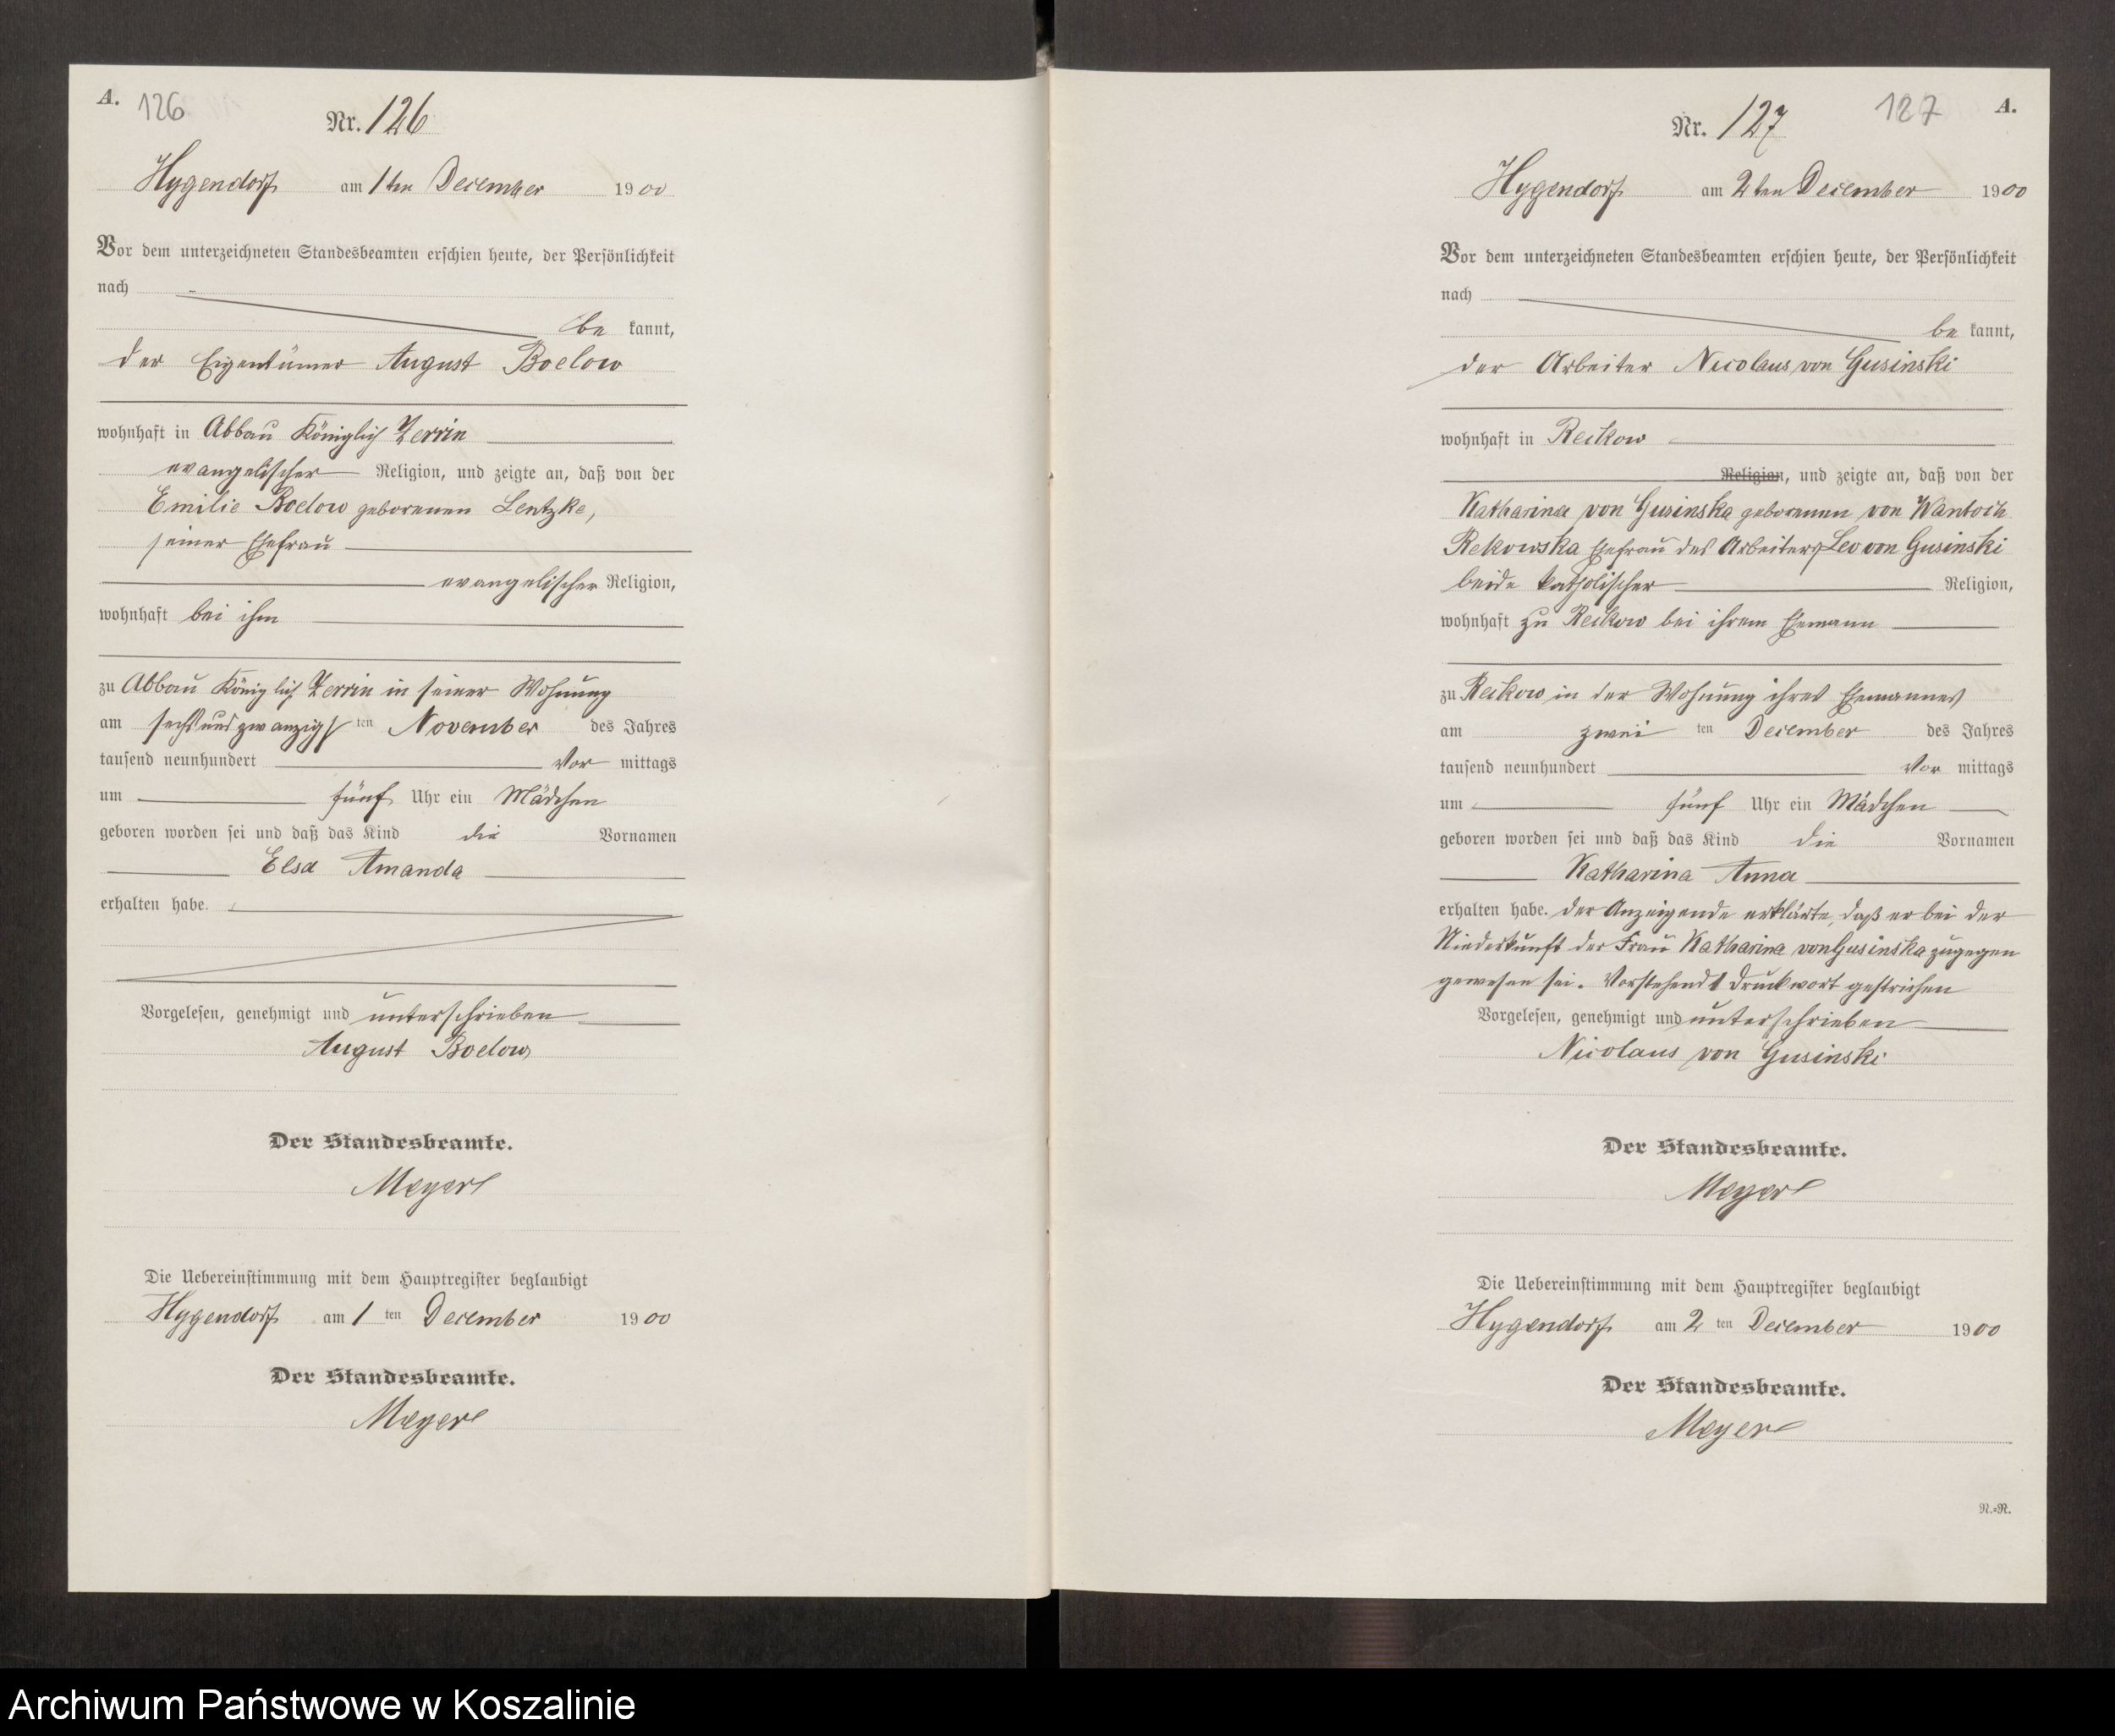 A. 126
Nr. 126
Hygendorf am 1ten December 1900
Vor dem unterzeichneten Standesbeamten erschien heute, der Persönlichkeit
nach
be kannt,
der Eigentümer August Boelow
wohnhaft in Abbau Königlich Zerrin
evangelischer Religion, und zeigte an, daß von der
Emilie Boelow geborenen Lentzke,
seiner Ehefrau
evangelischer Religion,
wohnhaft bei ihm
zu Abbau Königlich Zerrin in seiner Wohnung
am sechsundzwanzigs ten November des Jahres
tausend neunhundert Vor mittags
um fünf Uhr ein Mädchen
geboren worden sei und daß das Kind die Vornamen
Elsa Amanda
erhalten habe.
Vorgelesen, genehmigt und unterschrieben
August Boelow
Der Standesbeamte.
Meyer
Die Uebereinstimmung mit dem Hauptregister beglaubigt
Hygendorf am 1 ten December 1900
Der Standesbeamte.
Meyer
127 A.
Nr. 127
Hygendorf am 2ten December 1900
Vor dem unterzeichneten Standesbeamten erschien heute, der Persönlichkeit
nach
be kannt,
der Arbeiter Nicolaus von Gusinski
wohnhaft in Reckow
Religion, und zeigte an, daß von der
Katharina von Gusinska geborenen von Wantoch
Rekowska Ehefrau des Arbeiters Leo von Gusinski
beide katholischer Religion,
wohnhaft zu Reckow bei ihrem Ehemann
zu Reckow in der Wohnung ihres Ehemannes
am zwei ten December des Jahres
tausend neunhundert Vor mittags
um fünf Uhr ein Mädchen
geboren worden sei und daß das Kind die Vornamen
Katharina Anna
erhalten habe. der Anzeigende erklärte, daß er bei der
Niederkunft der Frau Katharina von Gusinska zugegen
gewesen sei. Vorstehend 1 Druckwort gestrichen
Vorgelesen, genehmigt und unterschrieben
Nicolaus von Gusinski
Der Standesbeamte.
Meyer
Die Uebereinstimmung mit dem Hauptregister beglaubigt
Hygendorf am 2 ten December 1900
Der Standesbeamte.
Meyer
N.=R.
Archiwum Państwowe w Koszalinie